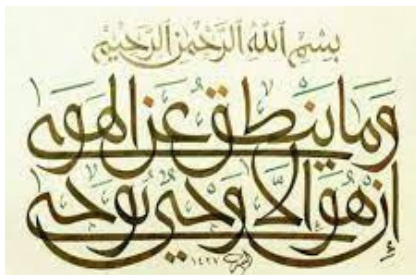 بِسْمِ اللهِ الرَّحْمٰنِ الرَّحِيْمِ
وَمَا يَنْطِقُ عَنِ الْهَوَى
إِنْ هُوَ إِلَّا وَحْيٌ يُوحَى
١٤٢٧